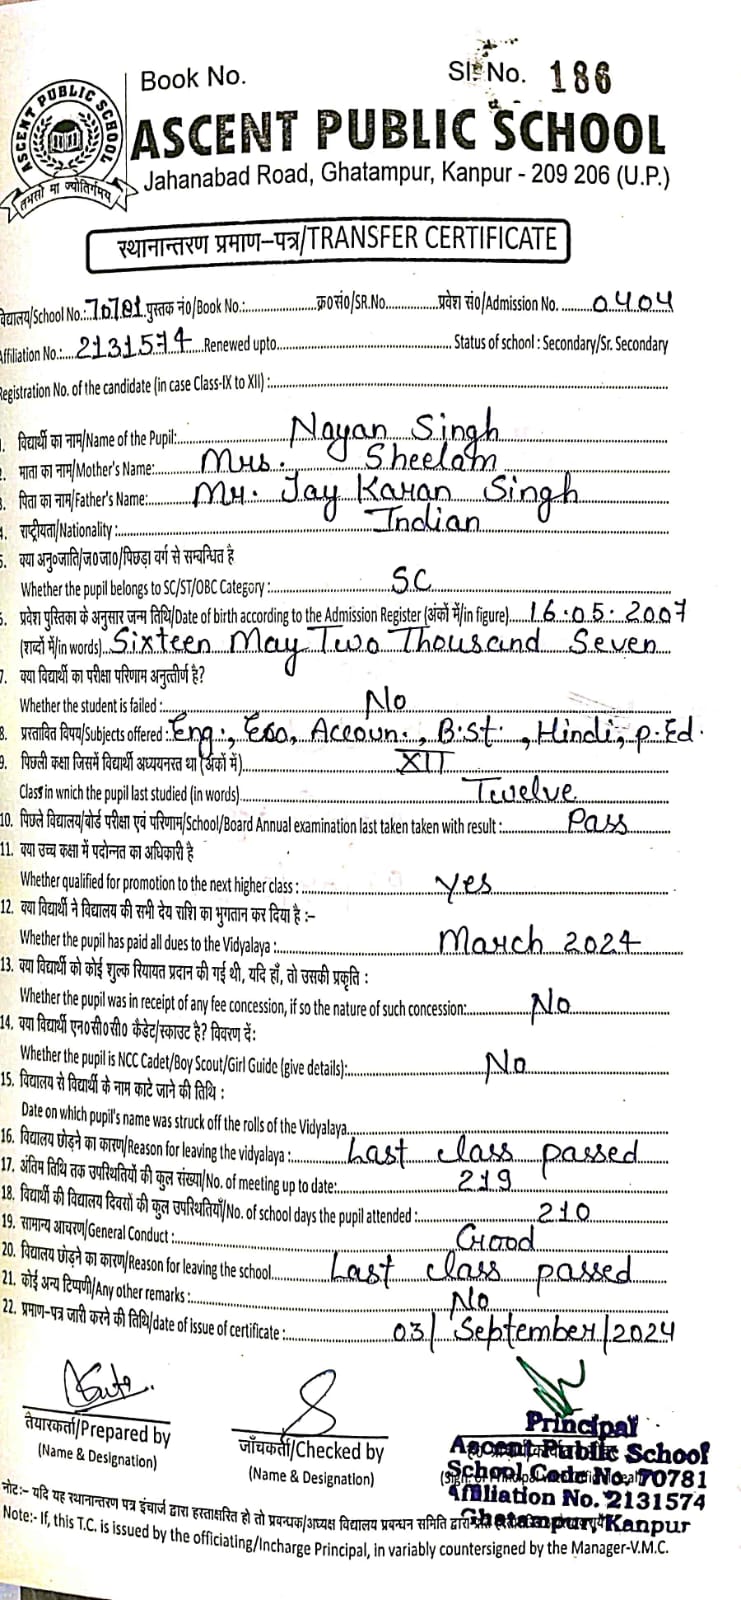 Book No.
Sl. No. 186
ASCENT PUBLIC SCHOOL
तमसो मा ज्योतिर्गमय
ASCENT PUBLIC SCHOOL
Jahanabad Road, Ghatampur, Kanpur - 209 206 (U.P.)
स्थानान्तरण प्रमाण-पत्र/TRANSFER CERTIFICATE
विद्यालय/School No.: 70781 पुस्तक नं०/Book No.: क्र०सं०/SR.No. प्रवेश सं०/Admission No. 0404
Affiliation No.: 2131574 Renewed upto Status of school : Secondary/Sr. Secondary
Registration No. of the candidate (in case Class-IX to XII) :
1. विद्यार्थी का नाम/Name of the Pupil: Nayan Singh
2. माता का नाम/Mother's Name: Mrs. Sheelam
3. पिता का नाम/Father's Name: Mr. Jay Karan Singh
4. राष्ट्रीयता/Nationality : Indian
5. क्या अनु०जाति/ज०जा०/पिछड़ा वर्ग से सम्बन्धित है
Whether the pupil belongs to SC/ST/OBC Category : SC
6. प्रवेश पुस्तिका के अनुसार जन्म तिथि/Date of birth according to the Admission Register (अंकों में/in figure) 16.05.2007
(शब्दों में/in words) Sixteen May Two Thousand Seven
7. क्या विद्यार्थी का परीक्षा परिणाम अनुत्तीर्ण है?
Whether the student is failed : No
8. प्रस्तावित विषय/Subjects offered : Eng., Eco, Accoun., B.st., Hindi, P.Ed.
9. पिछली कक्षा जिसमें विद्यार्थी अध्ययनरत था (अंकों में) XII
Class in wnich the pupil last studied (in words) Twelve
10. पिछले विद्यालय/बोर्ड परीक्षा एवं परिणाम/School/Board Annual examination last taken taken with result : Pass
11. क्या उच्च कक्षा में पदोन्नत का अधिकारी है
Whether qualified for promotion to the next higher class : Yes
12. क्या विद्यार्थी ने विद्यालय की सभी देय राशि का भुगतान कर दिया है :-
Whether the pupil has paid all dues to the Vidyalaya : March 2024
13. क्या विद्यार्थी को कोई शुल्क रियायत प्रदान की गई थी, यदि हाँ, तो उसकी प्रकृति :
Whether the pupil was in receipt of any fee concession, if so the nature of such concession: No
14. क्या विद्यार्थी एन०सी०सी० कैडेट/स्काउट है? विवरण दें:
Whether the pupil is NCC Cadet/Boy Scout/Girl Guide (give details): No
15. विद्यालय से विद्यार्थी के नाम काटे जाने की तिथि :
Date on which pupil's name was struck off the rolls of the Vidyalaya
16. विद्यालय छोड़ने का कारण/Reason for leaving the vidyalaya : Last class passed
17. अंतिम तिथि तक उपस्थितियों की कुल संख्या/No. of meeting up to date: 219
18. विद्यार्थी की विद्यालय दिवसों की कुल उपस्थितियाँ/No. of school days the pupil attended : 210
19. सामान्य आचरण/General Conduct : Good
20. विद्यालय छोड़ने का कारण/Reason for leaving the school Last class passed
21. कोई अन्य टिप्पणी/Any other remarks : No
22. प्रमाण-पत्र जारी करने की तिथि/date of issue of certificate : 03/September/2024
तैयारकर्ता/Prepared by
(Name & Designation)
जाँचकर्ता/Checked by
(Name & Designation)
Principal
Ascent Public School
School Code No. 70781
Affiliation No. 2131574
Ghatampur, Kanpur
नोट:- यदि यह स्थानान्तरण पत्र इंचार्ज द्वारा हस्ताक्षरित हो तो प्रबन्धक/अध्यक्ष विद्यालय प्रबन्धन समिति द्वारा
Note:- If, this T.C. is issued by the officiating/Incharge Principal, in variably countersigned by the Manager-V.M.C.